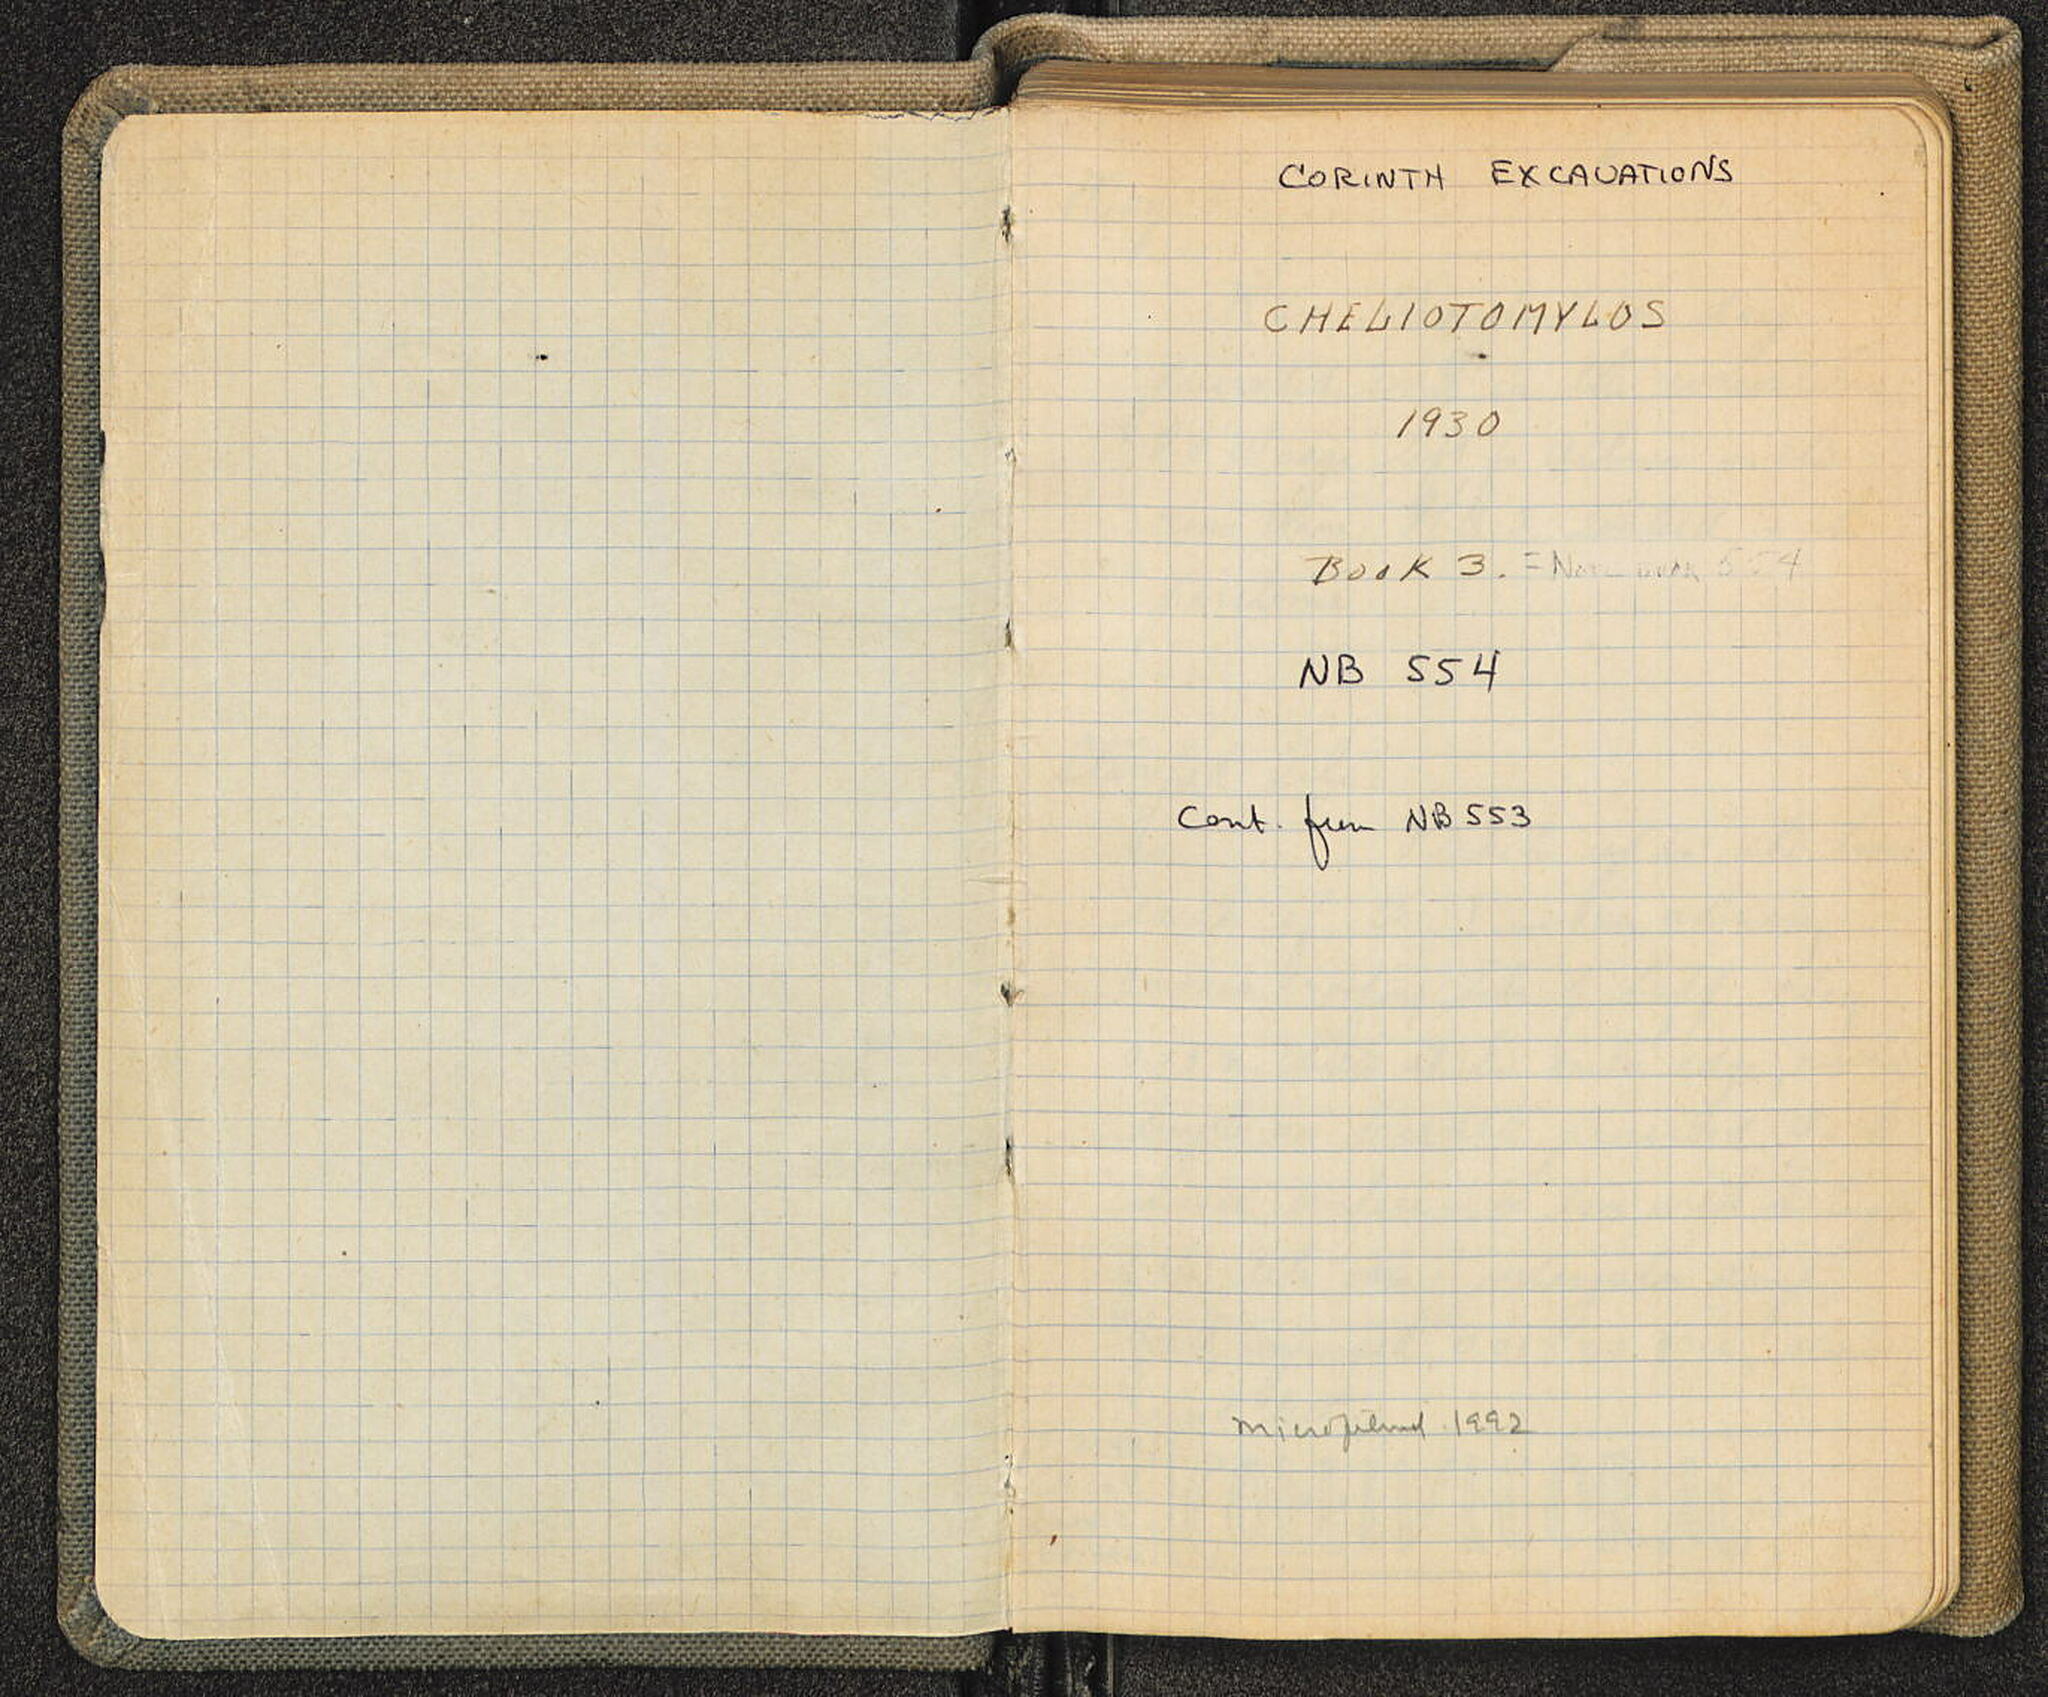 CORINTH EXCAVATIONS
CHELIOTOMYLOS
1930
BOOK 3. = Notebook 554
NB 554
Cont. from NB 553
microfilmed 1992